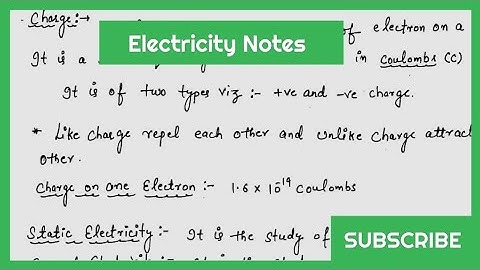 Electricity Notes
Charge :→ of electron on a
It is a in coulombs (C)
It is of two types viz :- +ve and -ve charge.
* Like charge repel each other and unlike charge attract
other.
Charge on one Electron :- 1.6 x 10⁻¹⁹ Coulombs
Static Electricity :- It is the study of
SUBSCRIBE